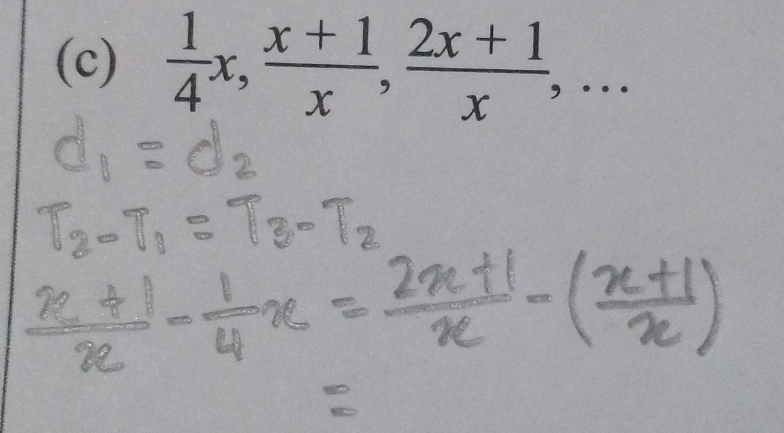 (c) 1/4 x, (x + 1)/x, (2x + 1)/x, ...
d₁ = d₂
T₂ - T₁ = T₃ - T₂
(x + 1)/x - 1/4 x = (2x + 1)/x - ((x + 1)/x)
=